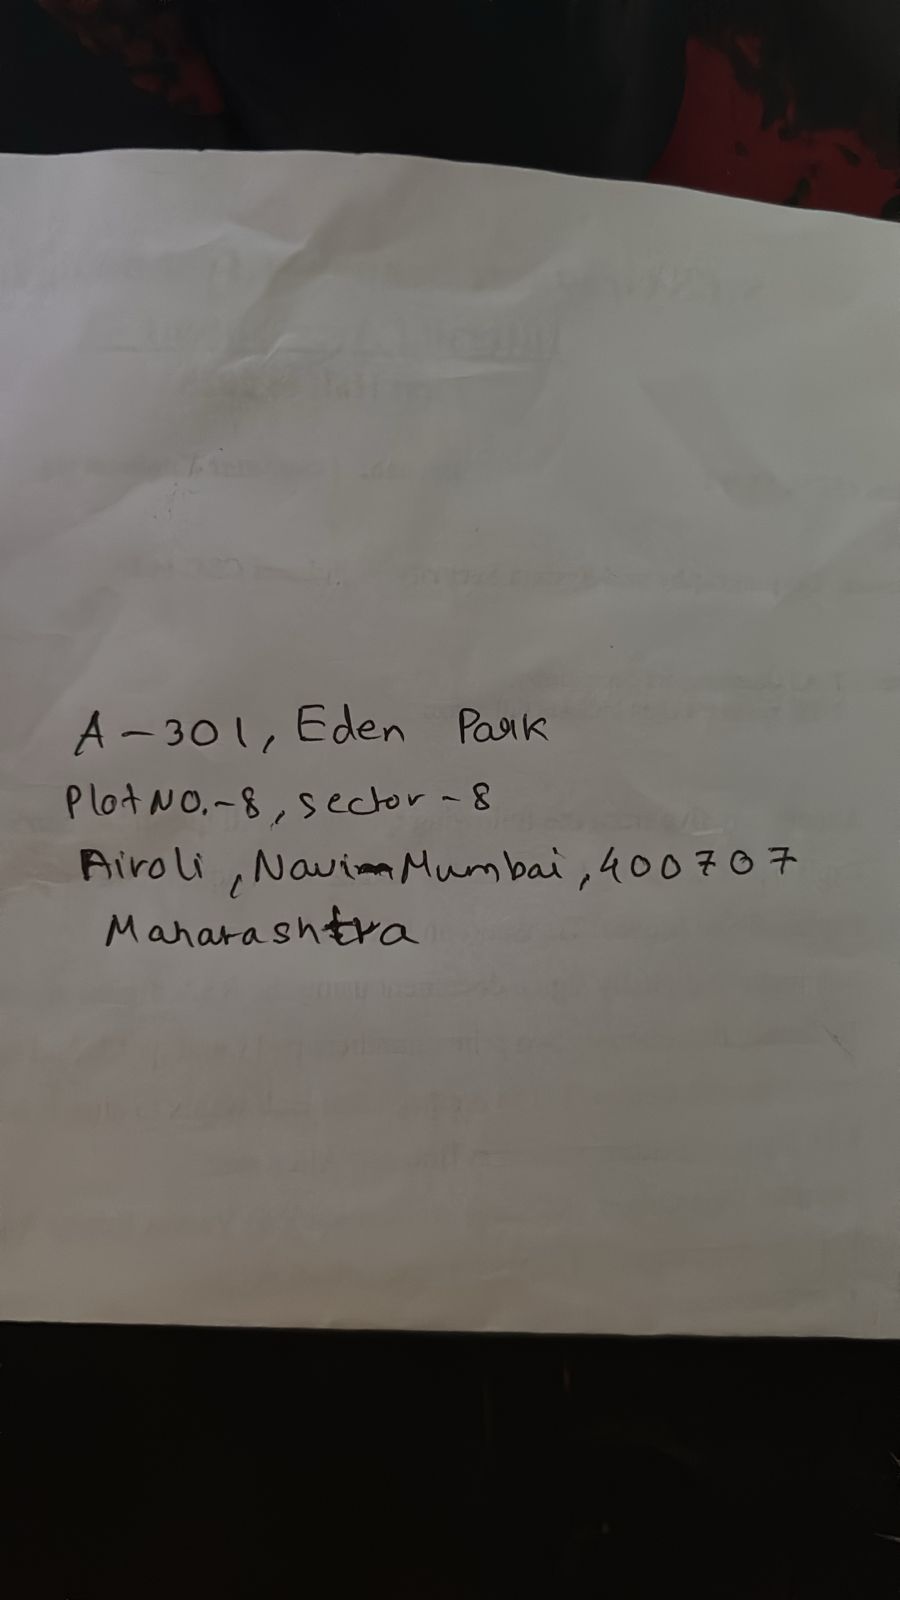 A-301, Eden Park
Plot NO.-8, sector-8
Airoli, Navi-Mumbai, 400707
Maharashtra